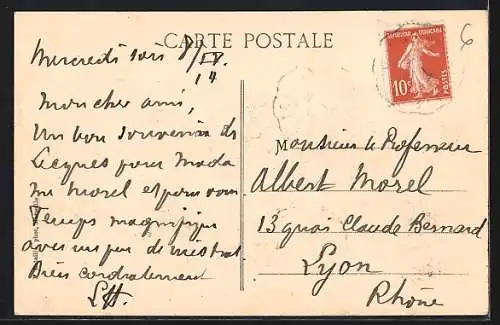 CARTE POSTALE
Mercredi soir 8/IV
14
Mon cher ami,
Un bon souvenir de
Lecques pour Mada
me Morel et pour vous
Temps magnifique
avec un peu de mistral
Bien cordialement
LH.
REPUBLIQUE FRANÇAISE
10c
POSTES
6
Monsieur le Professeur
Albert Morel
13 quai Claude Bernard
Lyon
Rhône